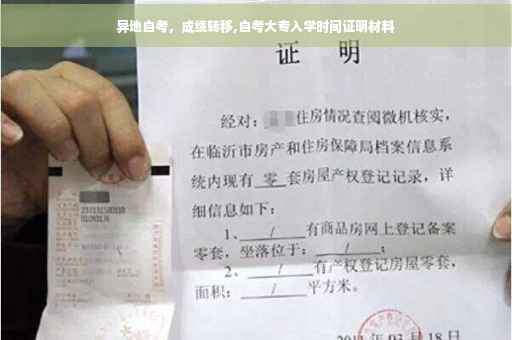 异地自考，成绩转移,自考大专入学时间证明材料
证 明
经对：住房情况查阅微机核实，
在临沂市房产和住房保障局档案信息系
统内现有 零 套房屋产权登记记录，详
细信息如下：
1、 / 有商品房网上登记备案
零套，坐落位于： / ；
2、 / 有产权登记房屋零套，
面积： / 平方米。
03 月 18 日